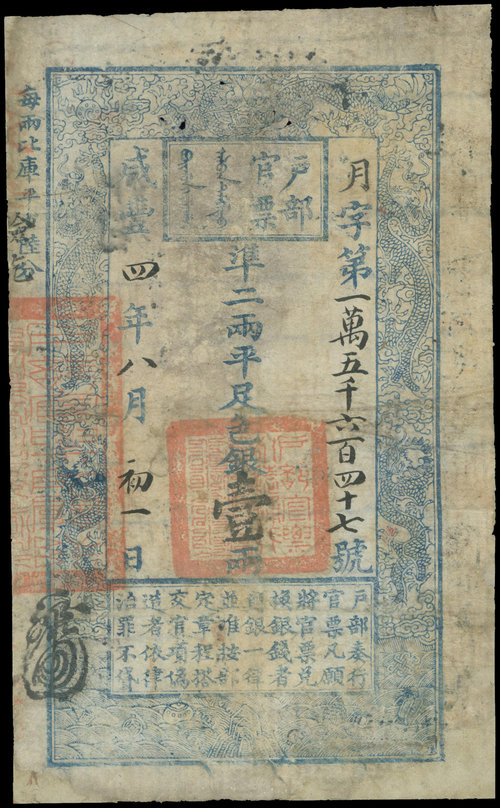 月字第一萬五千六百四十七號
戶部
官票
準二兩平足色銀壹兩
咸豐四年八月初一日
每兩比庫平陸分
戶部奏行
官票凡願
將官票兌
換銀錢者
與銀一律
並准按部
定章程搭
交官項偽
造者依律
治罪不貸